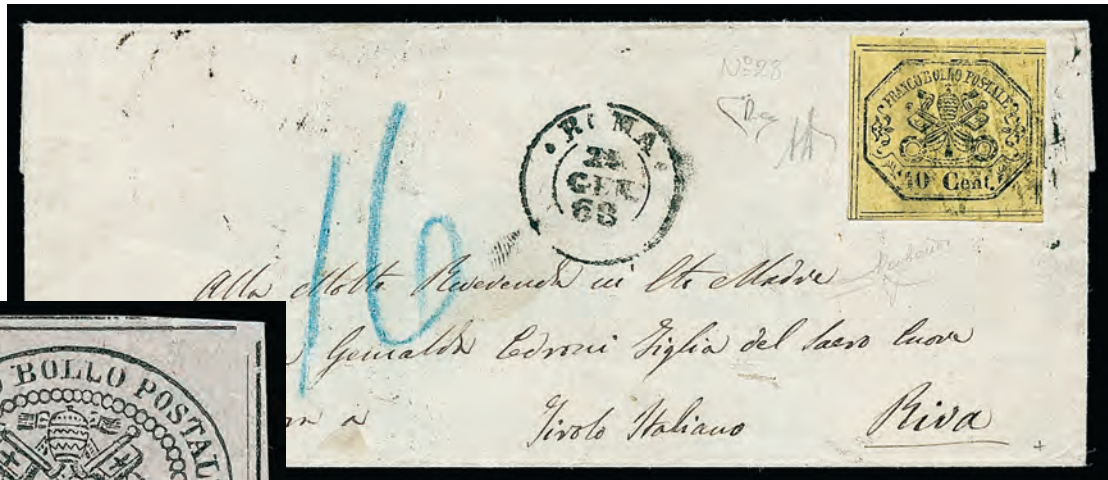 Nº 23
FRANCO BOLLO POSTALE
40 Cent.
ROMA
GEN
68
16
Alla Molto Reverenda in Cto Madre
Figlia del Sacro Cuore
Tirolo Italiano Riva
BOLLO POSTAL